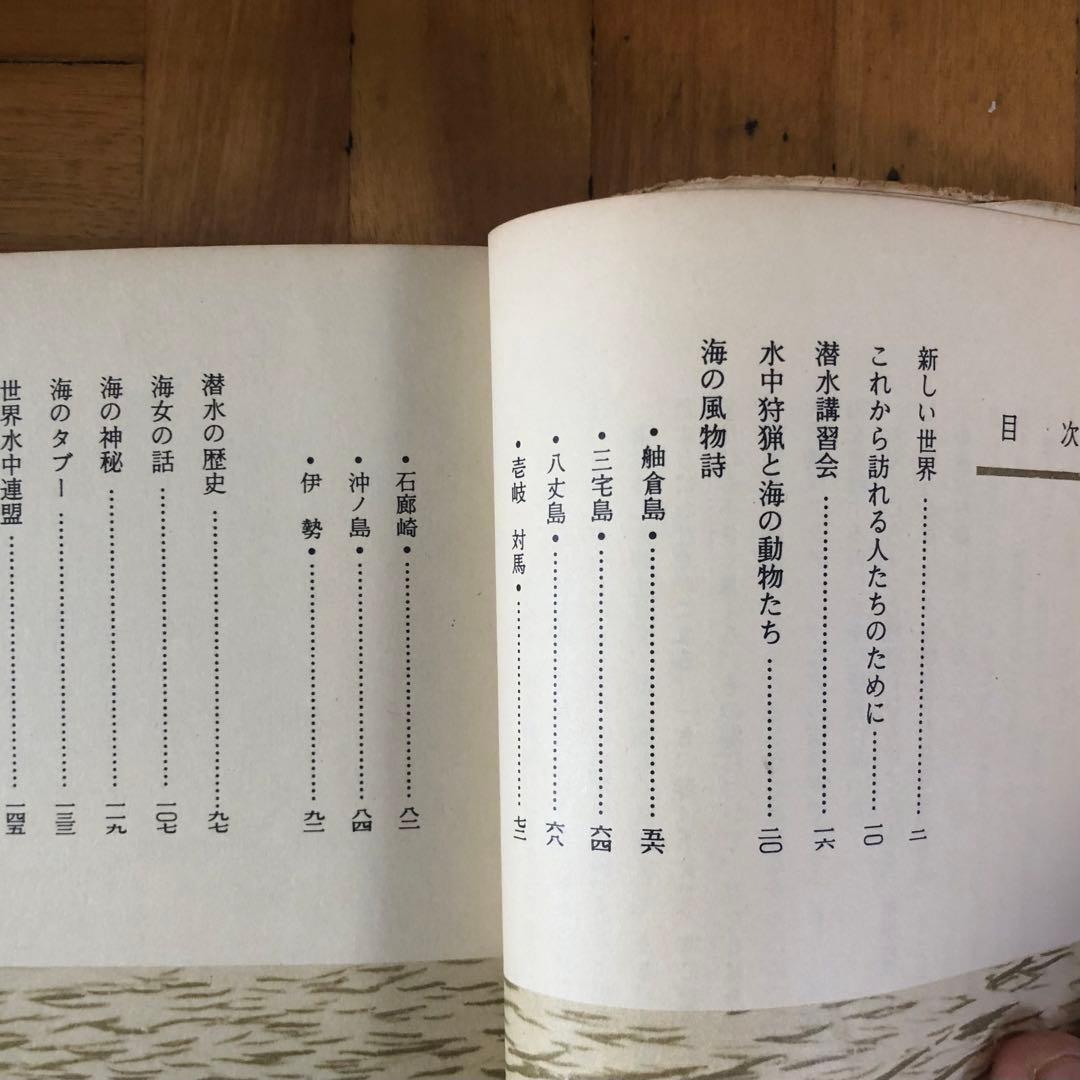 目次
新しい世界…………二
これから訪れる人たちのために…………一〇
潜水講習会…………一六
水中狩猟と海の動物たち…………二〇
海の風物詩
•舳倉島•…………五六
•三宅島•…………六四
•八丈島•…………六八
•壱岐 対馬•…………七二
•石廊崎•…………八二
•沖ノ島•…………八四
•伊 勢•…………九二
潜水の歴史…………九七
海女の話…………一〇七
海の神秘…………一一九
海のタブー…………一三三
世界水中連盟…………一四五